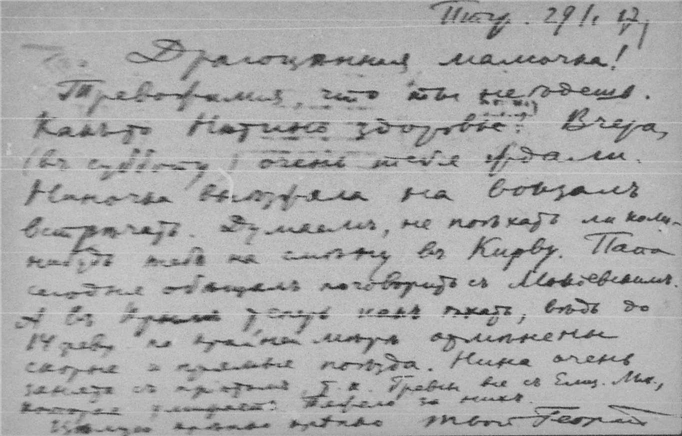 Птг. 29/I 17
Драгоцѣнная мамочка!
Тревожимся, что ты не ѣдешь.
Какъ-то Натино здоровье? Вчера,
(въ субботу) очень тебя ждали.
Ниночка выѣзжала на вокзалъ
встрѣчать. Думаемъ, не поѣхать ли кому-
нибудь тебѣ на смѣну въ Кирву. Папа
сегодня обѣщалъ поговорить съ
А въ Крымъ теперь какъ ѣхать, вѣдь до
14 февр. по крайней мѣрѣ отмѣнены
скорые и прямые поѣзда. Нина очень
занята съ т. к. все съ Елиз. Мих.,
которая умираетъ. Тяжело за нихъ.
Цѣлую крѣпко крѣпко твой Георгій